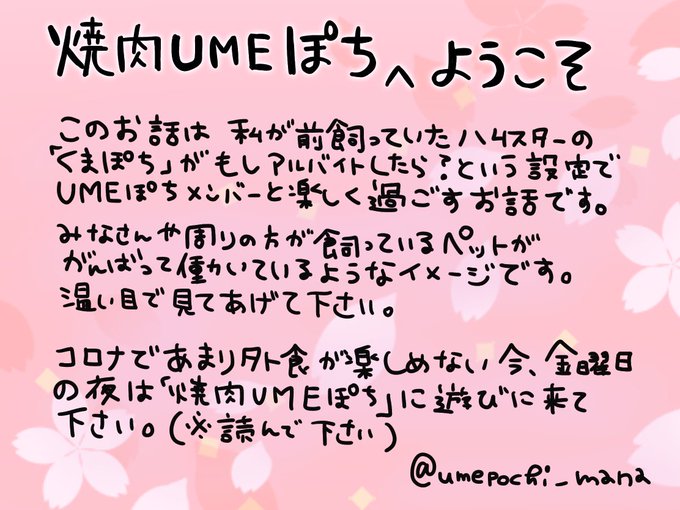 焼肉UMEぽちへようこそ
このお話は 私が前飼っていたハムスターの
「くまぽち」がもしアルバイトしたら?という設定で
UMEぽちメンバーと楽しく過ごすお話です。
みなさんや周りの方が飼っているペットが
がんばって働いているようなイメージです。
温い目で見てあげて下さい。
コロナであまり外食が楽しめない今、金曜日
の夜は「焼肉UMEぽち」に遊びに来て
下さい。(※読んで下さい)
@umepochi_mana